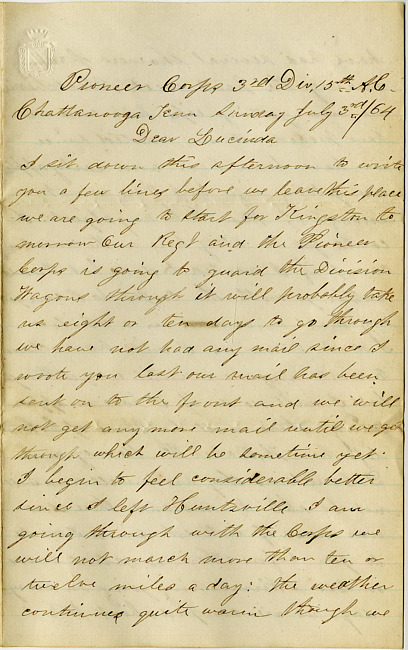 Pioneer Corps 3rd Div, 15th A.C.
Chattanooga Tenn Sunday July 3rd/64
Dear Lucinda
I sit down this afternoon to write
you a few lines before we leave this place
we are going to start for Kingston to
morrow Our Regt and the Pioneer
Corps is going to guard the Division
Wagons through it will probably take
us eight or ten days to go through
we have not had any mail since I
wrote you last our mail has been
sent on to the front and we will
not get any more mail until we get
through which will be sometime yet.
I begin to feel considerable better
since I left Huntsville I am
going through with the Corps we
will not march more than ten or
twelve miles a day: the weather
continues quite warm though we